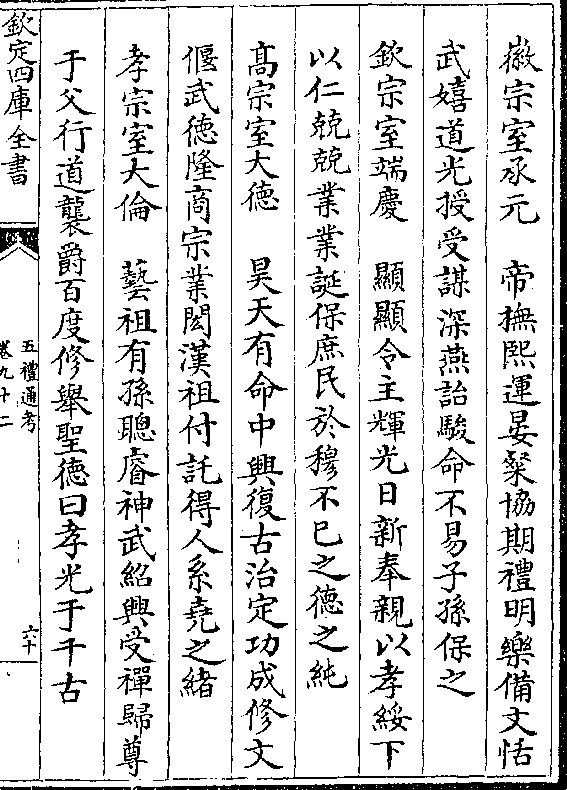 徽宗室承元　帝撫熙運晏粲協期禮明樂備文恬
武嬉道光授受謀深燕詒駿命不易子孫保之
欽宗室端慶　顯顯令主輝光日新奉親以孝綏下
以仁兢兢業業誕保庶民於穆不已之德之純
髙宗室大德　昊天有命中興復古治定功成修文
偃武德隆商宗業閎漢祖付託得人系堯之緒
孝宗室大倫　藝祖有孫聰睿神武紹興受禪歸尊
于父行道襲爵百度修舉聖德曰孝光于千古
欽定四庫全書
五禮通考
卷九十二
六十